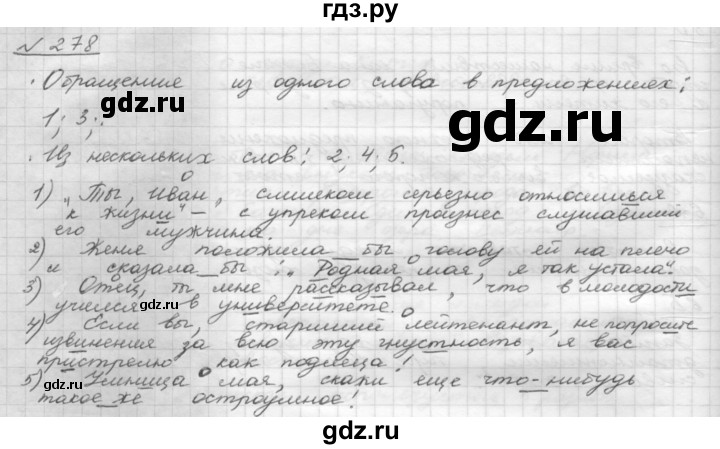 гдз.ру
№ 278
. Обращение из одного слова в предложениях:
1; 3;
. Из нескольких слов: 2; 4; 5.
1) „Ты, Иван, слишком серьезно относишься
к жизни" – с упреком произнес слушавший
его мужчина.
2) Женя положила бы голову ей на плечо
и сказала бы: „Родная моя, я так устала".
3) Отец, ты мне рассказывал, что в молодости
учился в университете.
4) Если вы, старший лейтенант, не попросите
извинения за всю эту гнустность, я вас
пристрелю как подлеца!
5) Умница моя, скажи еще что-нибудь
такое же остроумное!
gdz.ru
gdz.ru
gdz.ru
gdz.ru
gdz.ru
gdz.ru
gdz.ru